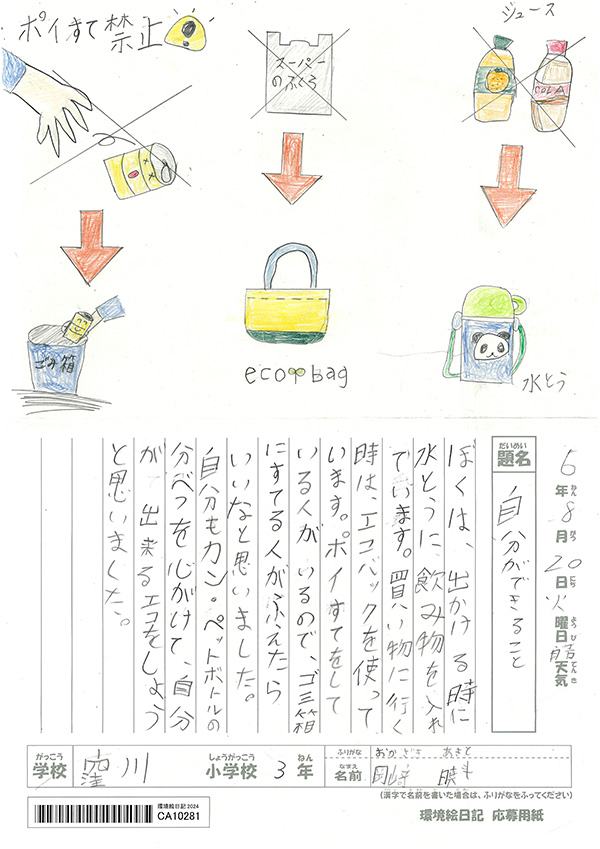 ポイすて禁止
スーパー
のふくろ
ジュース
COLA
ごみ箱
eco bag
水とう
6年8月20日火曜日
天気
ねん
がつ
にち
ようび
てんき
だいめい
題名
自分ができること
ぼくは、出かける時に
水とうに、飲み物を入れ
ています。買い物に行く
時は、エコバックを使って
います。ポイすてをして
いる人がいるので、ゴミ箱
にすてる人がふえたら
いいなと思いました。
自分もカン・ペットボトルの
分べつを心がけて、自分
が出来るエコをしよう
と思いました。
がっこう
学校
窪川
しょうがっこう
小学校
3年
ねん
ふりがな
おかざき あきと
なまえ
名前
岡﨑 暁斗
(漢字で名前を書いた場合は、ふりがなをふってください)
環境絵日記 2024
CA10281
環境絵日記 応募用紙